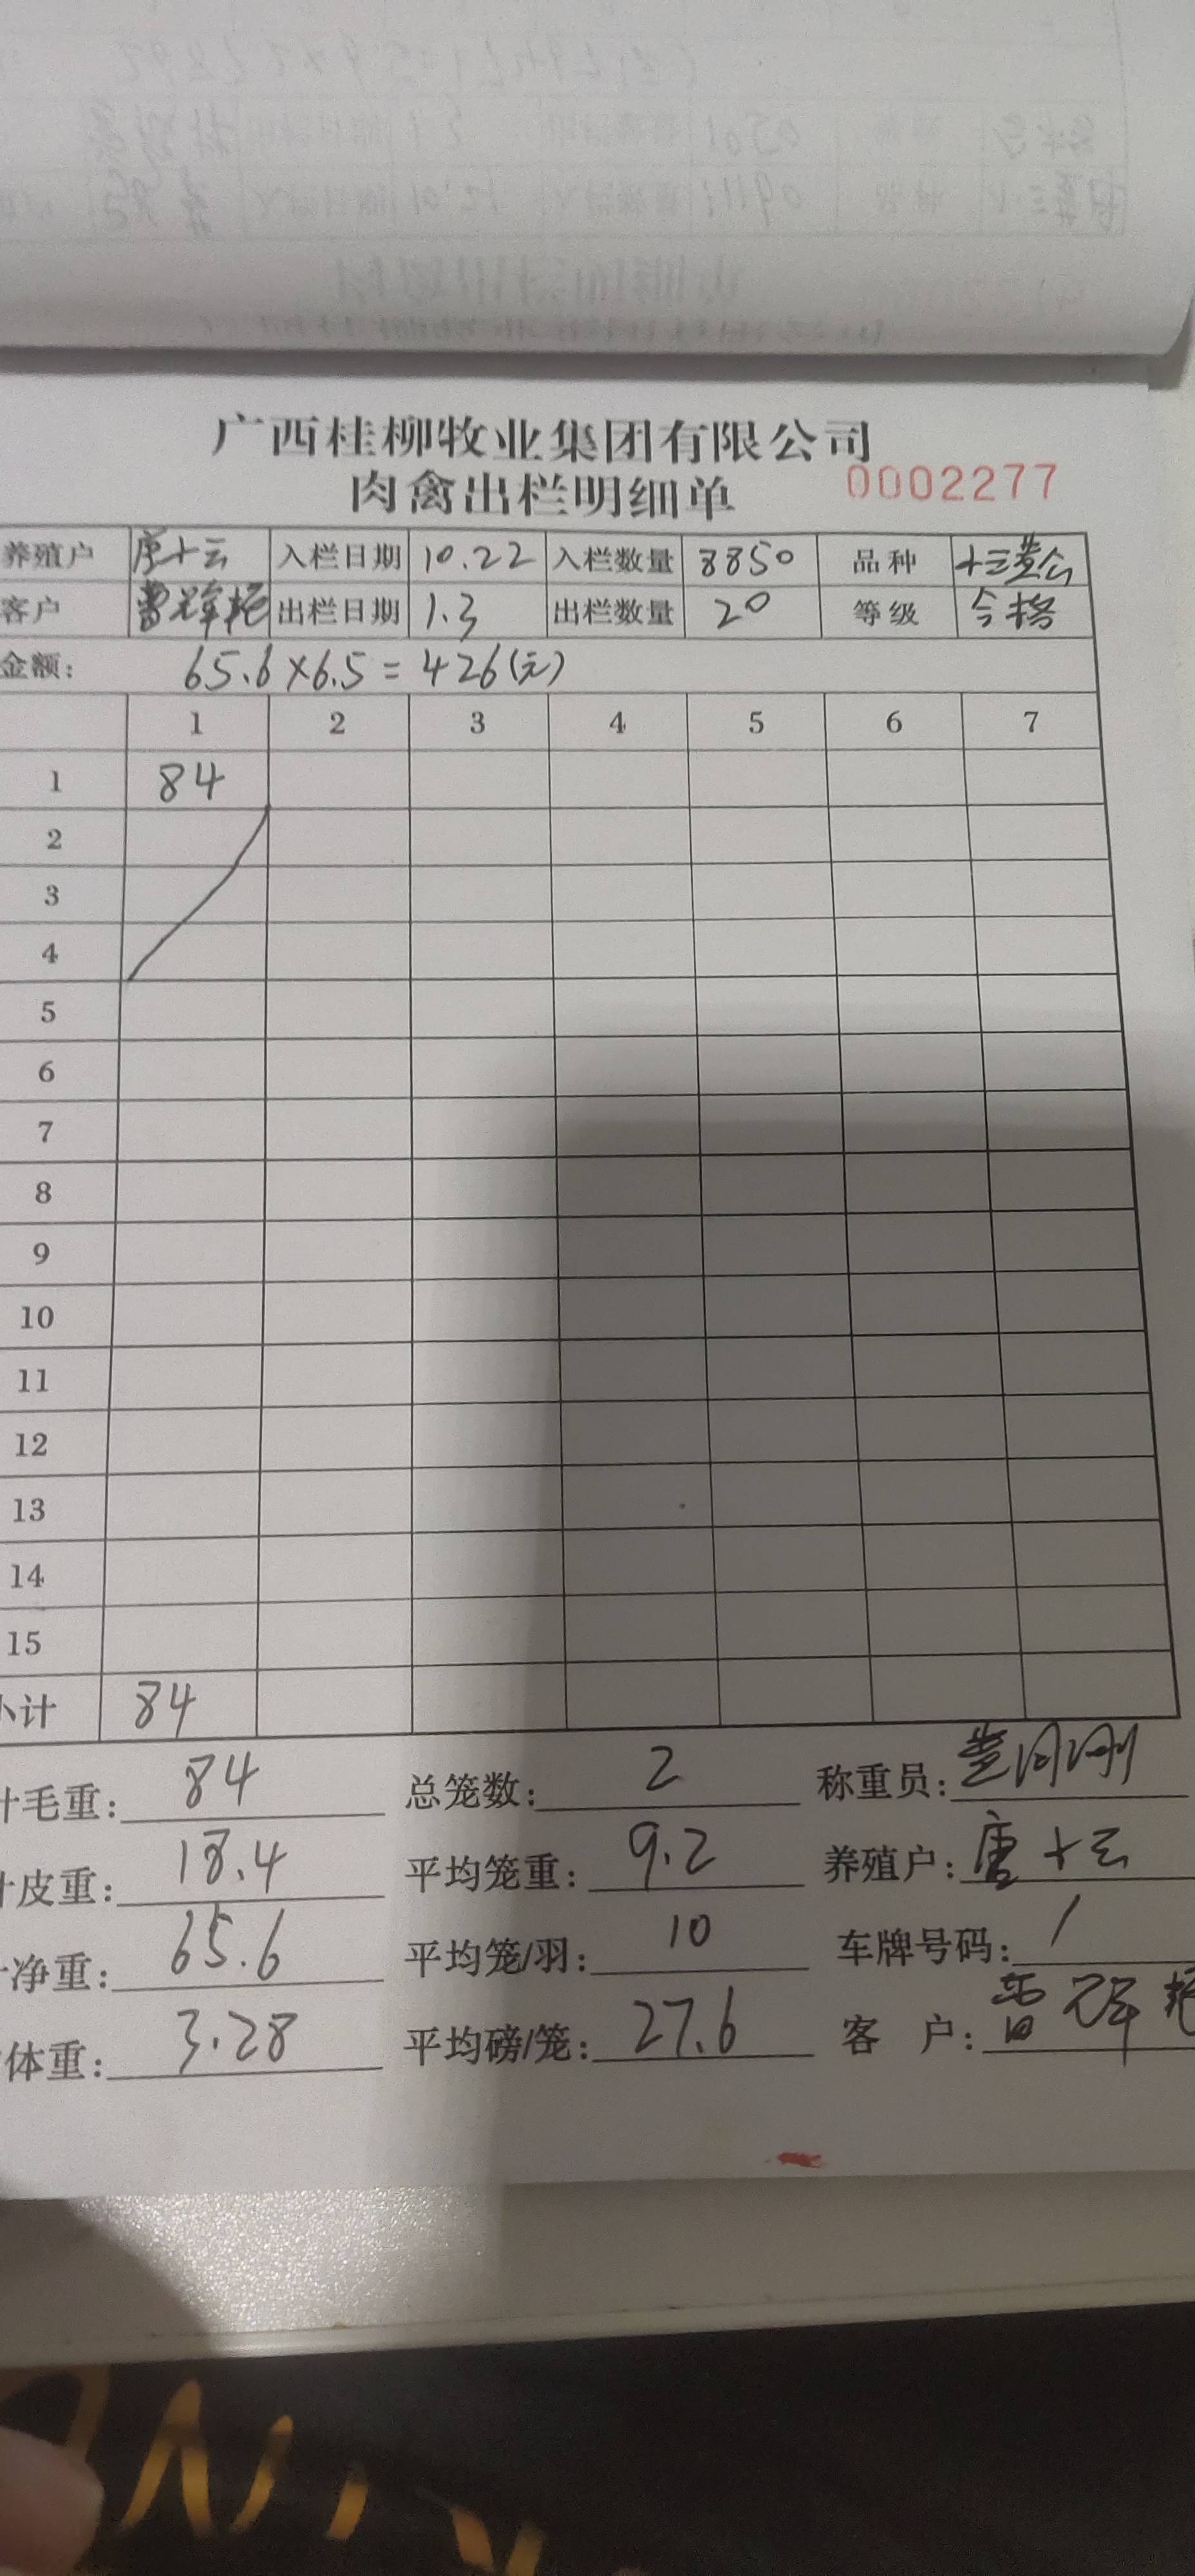 广西桂柳牧业集团有限公司
肉禽出栏明细单 0002277
养殖户 唐十云 入栏日期 10.22 入栏数量 8850 品种
客户 出栏日期 1.3 出栏数量 20 等级 合格
金额: 65.6×6.5=426(元)
1 2 3 4 5 6 7
1 84
2
3
4
5
6
7
8
9
10
11
12
13
14
15
小计 84
计毛重: 84 总笼数: 2 称重员:
计皮重: 18.4 平均笼重: 9.2 养殖户: 唐十云
净重: 65.6 平均笼/羽: 10 车牌号码: /
体重: 3.28 平均磅/笼: 27.6 客 户: